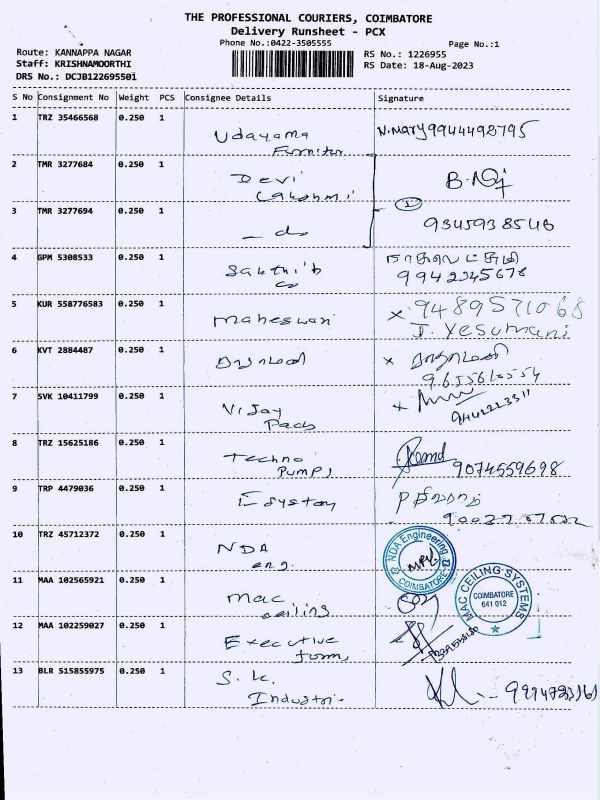 THE PROFESSIONAL COURIERS, COIMBATORE
Delivery Runsheet - PCX
Phone No.:0422-3505555 Page No.:1
Route: KANNAPPA NAGAR RS No.: 1226955
Staff: KRISHNAMOORTHI RS Date: 18-Aug-2023
DRS No.: DCJB122695501
S No Consignment No Weight PCS Consignee Details Signature
1 TRZ 35466568 0.250 1 Udayama N.Mary 9944492795
Furnitur
2 TMR 3277684 0.250 1 Devi
Lakshmi
3 TMR 3277694 0.250 1 — do 9345938546
4 GPM 5308533 0.250 1 Sakthi'b
co 9942345678
5 KUR 558776583 0.250 1 Maheswari x 9489571068
J. Yesumani
6 KVT 2884487 0.250 1 x
7 SVK 10411799 0.250 1 Vijay
Pads
8 TRZ 15625186 0.250 1 Techno
Pumps 9074559698
9 TRP 4479036 0.250 1
10 TRZ 45712372 0.250 1 NDA NDA Engineering
eng. COIMBATORE
11 MAA 102565921 0.250 1 Mac MAC CEILING SYSTEMS
ceiling COIMBATORE
641 012
12 MAA 102259027 0.250 1 Executive
form
13 BLR 515855975 0.250 1 S.K.
Industri-